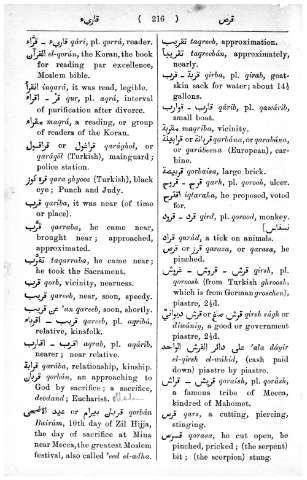 قاريء ( 216 ) قرس
قرّاء - قاريء qári, pl. qorrá, reader.
القرآن el-qorán, the Koran, the book
for reading par excellence,
Moslem bible.
انقرأ inqará, it was read, legible.
قر - اقراء qur, pl. aqrá, interval
of purification after divorce.
مقراء maqrá, a reading, or group
of readers of the Koran.
قراقول qarághol, or
qaráqól (Turkish), mainguard;
police station.
قره كوز qara ghyooz (Turkish), black
eye; Punch and Judy.
قرب qariba, it was near (of time
or place).
قرّب qarraba, he came near;
brought near; approached,
approximated.
تقرّب taqarraba, he came near;
he took the Sacrament.
قرب qorb, vicinity, nearness.
قريب qareeb, near, soon, speedy.
عن قريب 'an qareeb, soon, shortly.
قريب - اقرباء qareeb, pl. aqribá,
relative, kinsfolk.
اقرب - اقارب aqrab, pl. aqárib,
nearer; near relative.
قرابة qarába, relationship, kinship.
قربان qorbán, an approaching to
God by sacrifice; a sacrifice,
deodand; Eucharist.
عيد الاضحى or قربان بيرام qorbán
Bairám, 10th day of Zil Hijja,
the day of sacrifice at Mina
near Mecca, the greatest Moslem
festival, also called 'eed el-adha.
تقريب taqreeb, approximation.
تقريباً taqreeban, approximately,
nearly.
قربة - قرب qirba, pl. qirab, goat-
skin sack for water; about 14½
gallons.
قارب - قوارب qárib, pl. qawárib,
small boat.
مقربة maqriba, vicinity.
قربانة or قرابينة qorbána, or qorabána,
or qarábeena (European), car-
bine.
قربصة qorbaisa, large brick.
قرح - قروح qarh, pl. qorooh, ulcer.
اقترح iqtaraha, he proposed, voted
for.
قرد - قرود qird, pl. qorood, monkey.
قراد qarád, a tick on animals.
قرز or قرص qaraza, or qarasa, he
pinched.
قرش - قروش - غروش qirsh, pl.
qoroosh (from Turkish ghroosh,
which is from German groschen),
piastre, 2½d.
قرش صاغ or قرش ديواني qirsh ságh or
diwániy, a good or government
piastre, 2½d.
على دائر القرش الواحد 'ala dáyir
el-qirsh el-wáhid, (cash paid
down) piastre by piastre.
قريش - قراش qoraish, pl. qorásh,
a famous tribe of Mecca,
kindred of Mahomet.
قرص qars, a cutting, piercing,
stinging.
قرس qarasa, he cut open, he
pinched, pricked; (the serpent)
bit; (the scorpion) stung.